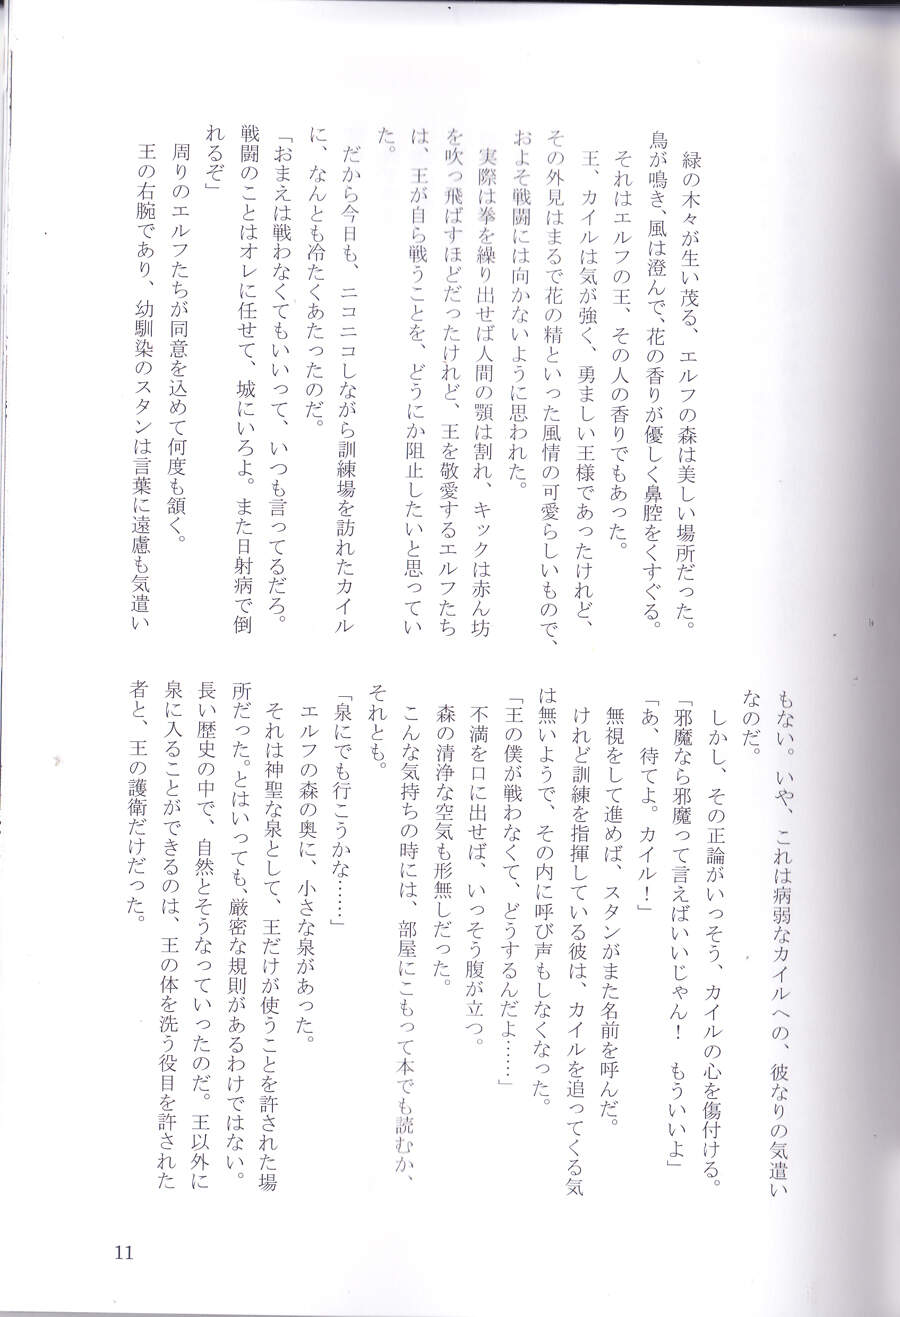 緑の木々が生い茂る、エルフの森は美しい場所だった。
鳥が鳴き、風は澄んで、花の香りが優しく鼻腔をくすぐる。
それはエルフの王、その人の香りでもあった。
王、カイルは気が強く、勇ましい王様であったけれど、
その外見はまるで花の精といった風情の可愛らしいもので、
およそ戦闘には向かないように思われた。
実際は拳を繰り出せば人間の顎は割れ、キックは赤ん坊
を吹っ飛ばすほどだったけれど、王を敬愛するエルフたち
は、王が自ら戦うことを、どうにか阻止したいと思ってい
た。
だから今日も、ニコニコしながら訓練場を訪れたカイル
に、なんとも冷たくあたったのだ。
「おまえは戦わなくてもいいって、いつも言ってるだろ。
戦闘のことはオレに任せて、城にいろよ。また日射病で倒
れるぞ」
周りのエルフたちが同意を込めて何度も頷く。
王の右腕であり、幼馴染のスタンは言葉に遠慮も気遣い
もない。いや、これは病弱なカイルへの、彼なりの気遣い
なのだ。
しかし、その正論がいっそう、カイルの心を傷付ける。
「邪魔なら邪魔って言えばいいじゃん!　もういいよ」
「あ、待てよ。カイル!」
無視をして進めば、スタンがまた名前を呼んだ。
けれど訓練を指揮している彼は、カイルを追ってくる気
は無いようで、その内に呼び声もしなくなった。
「王の僕が戦わなくて、どうするんだよ……」
不満を口に出せば、いっそう腹が立つ。
森の清浄な空気も形無しだった。
こんな気持ちの時には、部屋にこもって本でも読むか、
それとも。
「泉にでも行こうかな……」
エルフの森の奥に、小さな泉があった。
それは神聖な泉として、王だけが使うことを許された場
所だった。とはいっても、厳密な規則があるわけではない。
長い歴史の中で、自然とそうなっていったのだ。王以外に
泉に入ることができるのは、王の体を洗う役目を許された
者と、王の護衛だけだった。
11